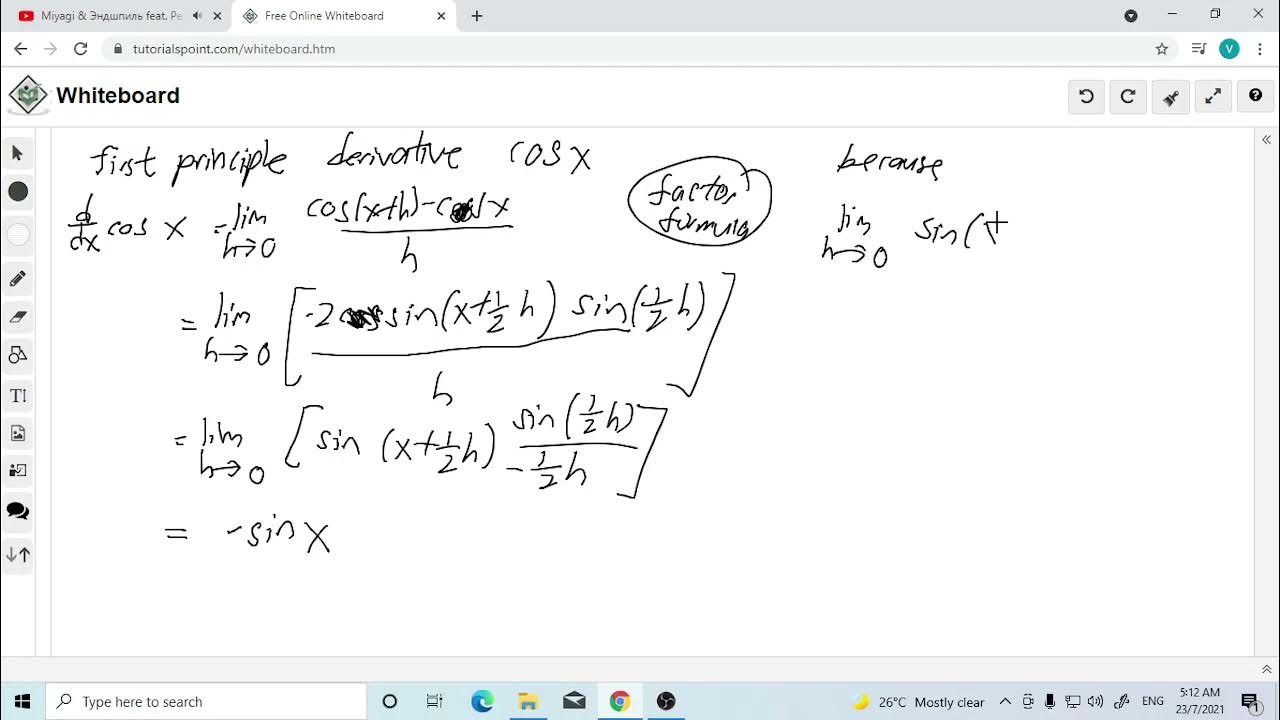 Miyagi & Эндшпиль feat. Ре
Free Online Whiteboard
tutorialspoint.com/whiteboard.htm
V
Whiteboard
first principle derivative cos x
because
factor
formula
d/dx cos x = lim h→0 cos(x+h)-cos x / h
lim h→0 sin(
= lim h→0 [-2 sin(x+1/2 h) sin(1/2 h) / h]
= lim h→0 [sin (x+1/2 h) sin(1/2 h) / -1/2 h]
= -sin x
Type here to search
26°C Mostly clear
ENG
5:12 AM
23/7/2021